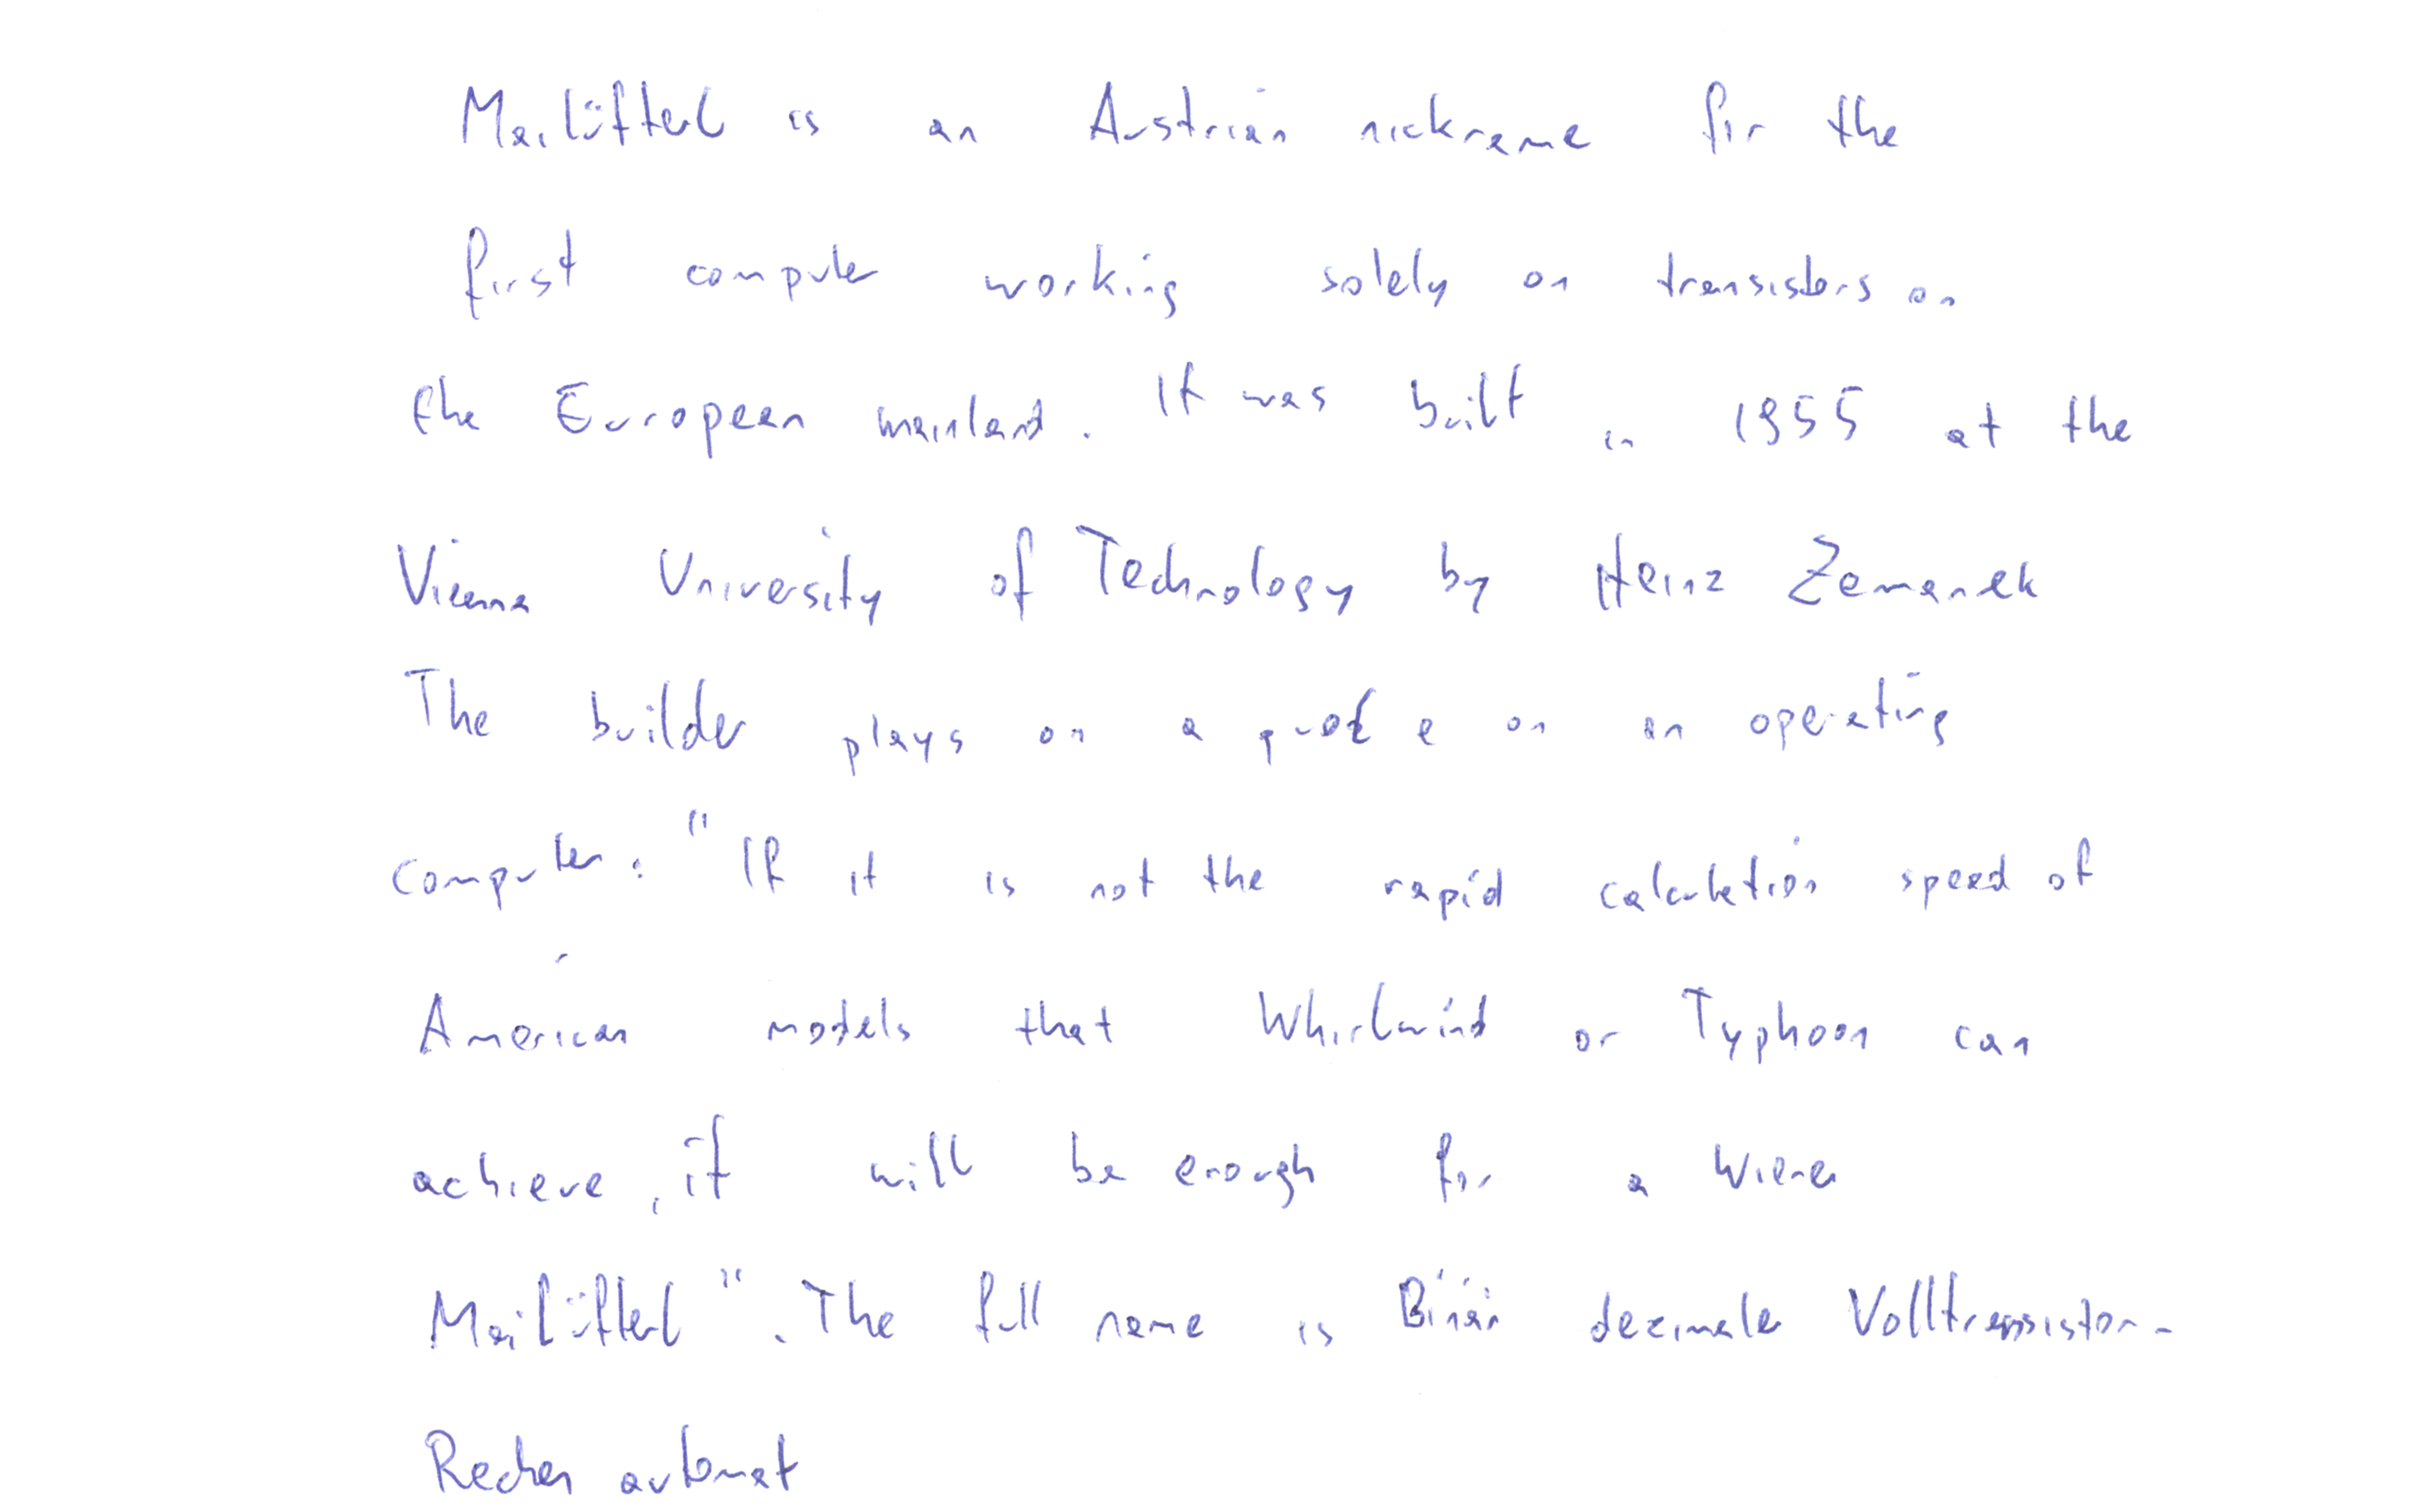 Mailüfterl is an Austrian nickname for the
first computer working solely on transistors on
the European mainland. It was built in 1955 at the
Vienna University of Technology by Heinz Zemanek
The builder plays on a quote on an operating
computer: "If it is not the rapid calculation speed of
American models that Whirlwind or Typhoon can
achieve, it will be enough for a Wiener
Mailüfterl". The full name is Binär dezimaler Volltransistor-
Rechen automat